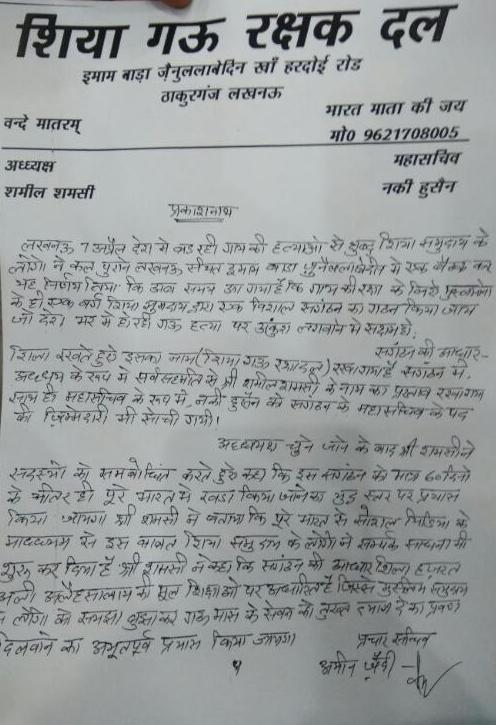 शिया गऊ रक्षक दल
इमाम बाड़ा जैनुललाबेदिन खाँ हरदोई रोड
ठाकुरगंज लखनऊ
वन्दे मातरम्
भारत माता की जय
मो० 9621708005
अध्यक्ष
महासचिव
शमील शमसी
नकी हुसैन
प्रकाशनार्थ
लखनऊ 7 अप्रैल देश मे बढ रही गाय की हत्याओ से क्षुब्द शिया समुदाय के
लोगो ने कल पुराने लखनऊ स्थित इमाम बाडा मे एक बैठक कर
यह निर्णय लिया कि अब समय आ गया है कि गाय की रक्षा के लिये मुसलमानो
के ही एक वर्ग शिया समुदाय द्वारा एक विशाल संगठन का गठन किया जाय
जो देश भर मे हो रही गऊ हत्या पर अंकुश लगवाने मे सक्षम हो।
संगठन की आधार-
शिला रखते हुऐ इसका नाम (शिया गऊ रक्षक दल) रखा गया है संगठन मे,
अध्यक्ष के रूप मे सर्वसहमति से श्री शमील शमसी के नाम का प्रस्ताव रखा गया
साथ ही महासचिव के रूप मे, नकी हुसैन को संगठन के महासचिव के पद
की जिम्मेदारी भी सौपी गयी!
अध्यक्ष चुने जाने के बाद श्री शमसी ने
सदस्यो को सम्बोधित करते हुऐ कहा कि इस संगठन को मात्र 60 दिनो
के भीतर ही पूरे भारत मे खडा किया जाने का युद्ध स्तर पर प्रयास
किया जायेगा श्री शमसी ने बताया कि पूरे भारत से सोशल मिडिया के
माध्यम से इस बाबत शिया समुदाय के लोगो ने सम्पर्क साधना भी
शुरू कर दिया है श्री शमसी ने कहा कि संगठन की आधार शिला हज़रत
अली अलैहसलाम की मूल शिक्षाओ पर आधारित है जिससे मुस्लिम समुदाय
लोगो को समझा बुझा कर गऊ मास के सेवन को तुरन्त त्याग देने का प्रण
दिलवाने का अभूतपूर्व प्रयास किया जायेगा
प्रचार सचिव
अमीन ज़ैदी